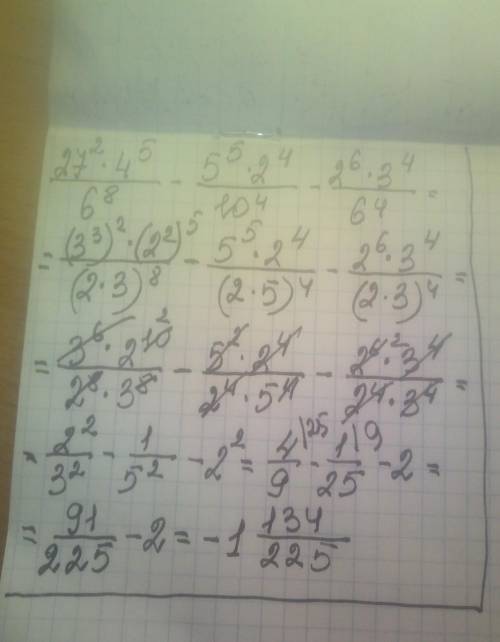 27² · 4⁵ / 6⁸ - 5⁵ · 2⁴ / 10⁴ - 2⁶ · 3⁴ / 6⁴ =
= (3³)² · (2²)⁵ / (2 · 3)⁸ - 5⁵ · 2⁴ / (2 · 5)⁴ - 2⁶ · 3⁴ / (2 · 3)⁴ =
= 3⁶ · 2¹⁰ ² / 2⁸ · 3⁸ - 5² · 2⁴ / 2⁴ · 5⁴ - 2⁶ ² · 3⁴ / 2⁴ · 3⁴ =
= 2² / 3² - 1 / 5² - 2² = 4 |25 / 9 - 1 |9 / 25 - 2 =
= 91 / 225 - 2 = - 1 134 / 225